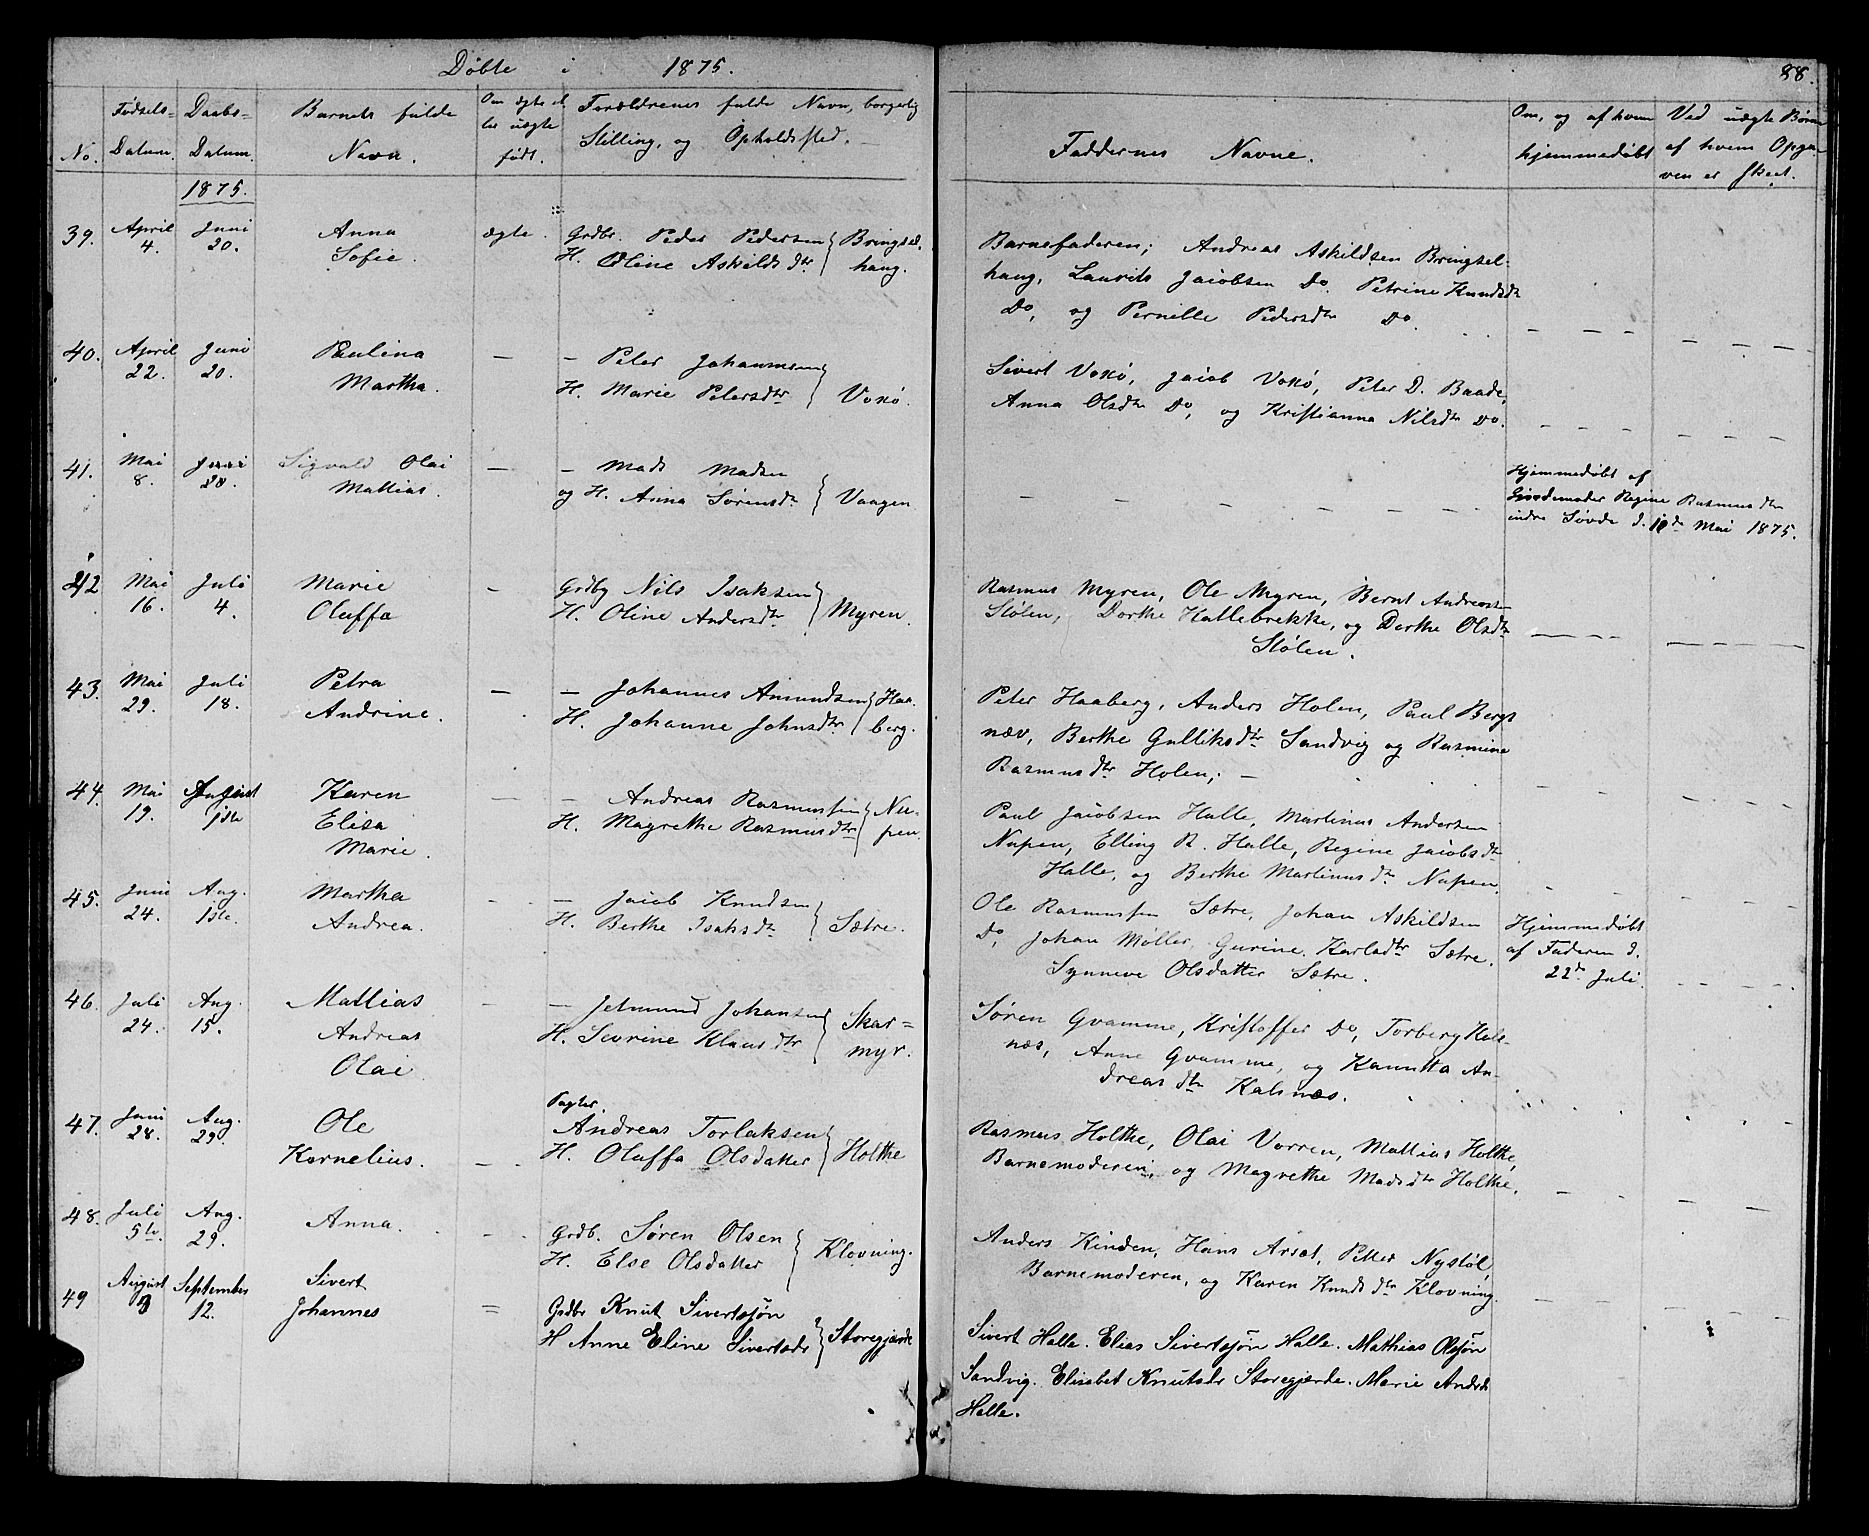 Døbte i 1875.
88.
No.
Fødsels-
Datum.
Daabs-
Datum.
Barnets fulde
Navn.
Om ægte el
ler uægte
født.
Forældrenes fulde Navn, borgerlig
Stilling, og Opholdssted.
Faddernes Navne.
Om, og af hvem
hjemmedøbt
Ved uægte Børn
af hvem Opga-
ven er skeet.
1875.
39. April 4. Juni 20. Anna
Sofie.
ægte.
Grdbr. Peder Pedersen
H. Oline Askilds dtr
Bringsel-
haug.
Barnefaderen; Andreas Askildsen Bringsel-
haug, Laurits Jacobsen Do. Petrine Knudsdtr
Do, og Pernille Pedersdtr Do.
40. April 22. Juni 20. Paulina
Martha.
— Peter Johannesen
H. Marie Petersdtr
Voxø.
Sivert Voxø, Jacob Voxø, Peter D. Baade,
Anna Olsdtr Do, og Kristianna Nilsdtr Do.
41. Mai 8. Juni 20. Sigvald Olai
Mattias.
— Mads Madsen
og H. Anna Sørensdtr
Vaagen
Hjemmedøbt af
Gjordemoder Regine Rasmusdtr
indre Søvde d. 10de Mai 1875.
42 Mai 16. Juli 4. Marie
Oluffa
Grdbr Nils Isaksen
H. Oline Andersdtr
Myren.
Rasmus Myren, Ole Myren, Bernt Andreasen
Stølen, Dorthe Hallebrekke, og Dorthe Olsdtr
Stølen.
43. Mai 29. Juli 18. Petra
Andrine.
— Johannes Amundsen
H. Johanne Johnsdtr
Haa-
berg.
Peter Haaberg, Anders Holen, Paul Bergs
næv, Berthe Gulliksdtr Sandvig og Rasmine
Rasmusdtr Holen;
44. Mai 19. August 1ste Karen
Elisa
Marie.
— Andreas Rasmussen
H. Magrethe Rasmusdtr
Nu-
pen
Paul Jacobsen Halle, Martinus Andersen
Nupen, Elling R. Halle, Regine Jacobsdtr
Halle, og Berthe Martinusdtr Nupen.
45. Juni 24. Aug. 1ste. Martha
Andrea.
— Jacob Knudsen
H. Berthe Isaksdtr
Sætre.
Ole Rasmussen Sætre, Johan Askildsen
Do, Johan Møller, Gurine Karlsdtr Sætre.
Synneve Olsdatter Sætre.
Hjemmedøbt
af Faderen d.
22de Juli.
46. Juli 24. Aug. 15. Mattias
Andreas
Olai
— Jetmund Johansen
H. Severine Klausdtr
Skar=
myr.
Søren Gvamme, Kristoffer Do, Torberg Kals-
næs, Anne Gvamme, og Kanutta An-
dreasdtr Kalsnæs.
47. Juni 28. Aug. 29. Ole
Kornelius.
Pagter.
Andreas Torlaksen
H. Oluffa Olsdatter
Holthe
Rasmus Holthe, Olai Vorren, Mattias Holthe,
Barnemoderen, og Magrethe Madsdtr Holthe.
48. Juli 5te. Aug. 29. Anna.
Grdb. Søren Olsen
H. Else Olsdatter
Klovning.
Anders Kinden, Hans Arset, Petter Nystøl,
Barnemoderen, og Karen Knudsdtr Klovning.
49 August 3 September 12. Sivert
Johannes
Grdbr Knut Sivertsøn
H Anne Eline Sivertsdr
Storegjærde
Sivert Halle. Elias Sivertsøn Halle. Mathias Olsøn
Sandvig. Elisabet Knutsdr Storegjærde. Marie Andrds
Halle.